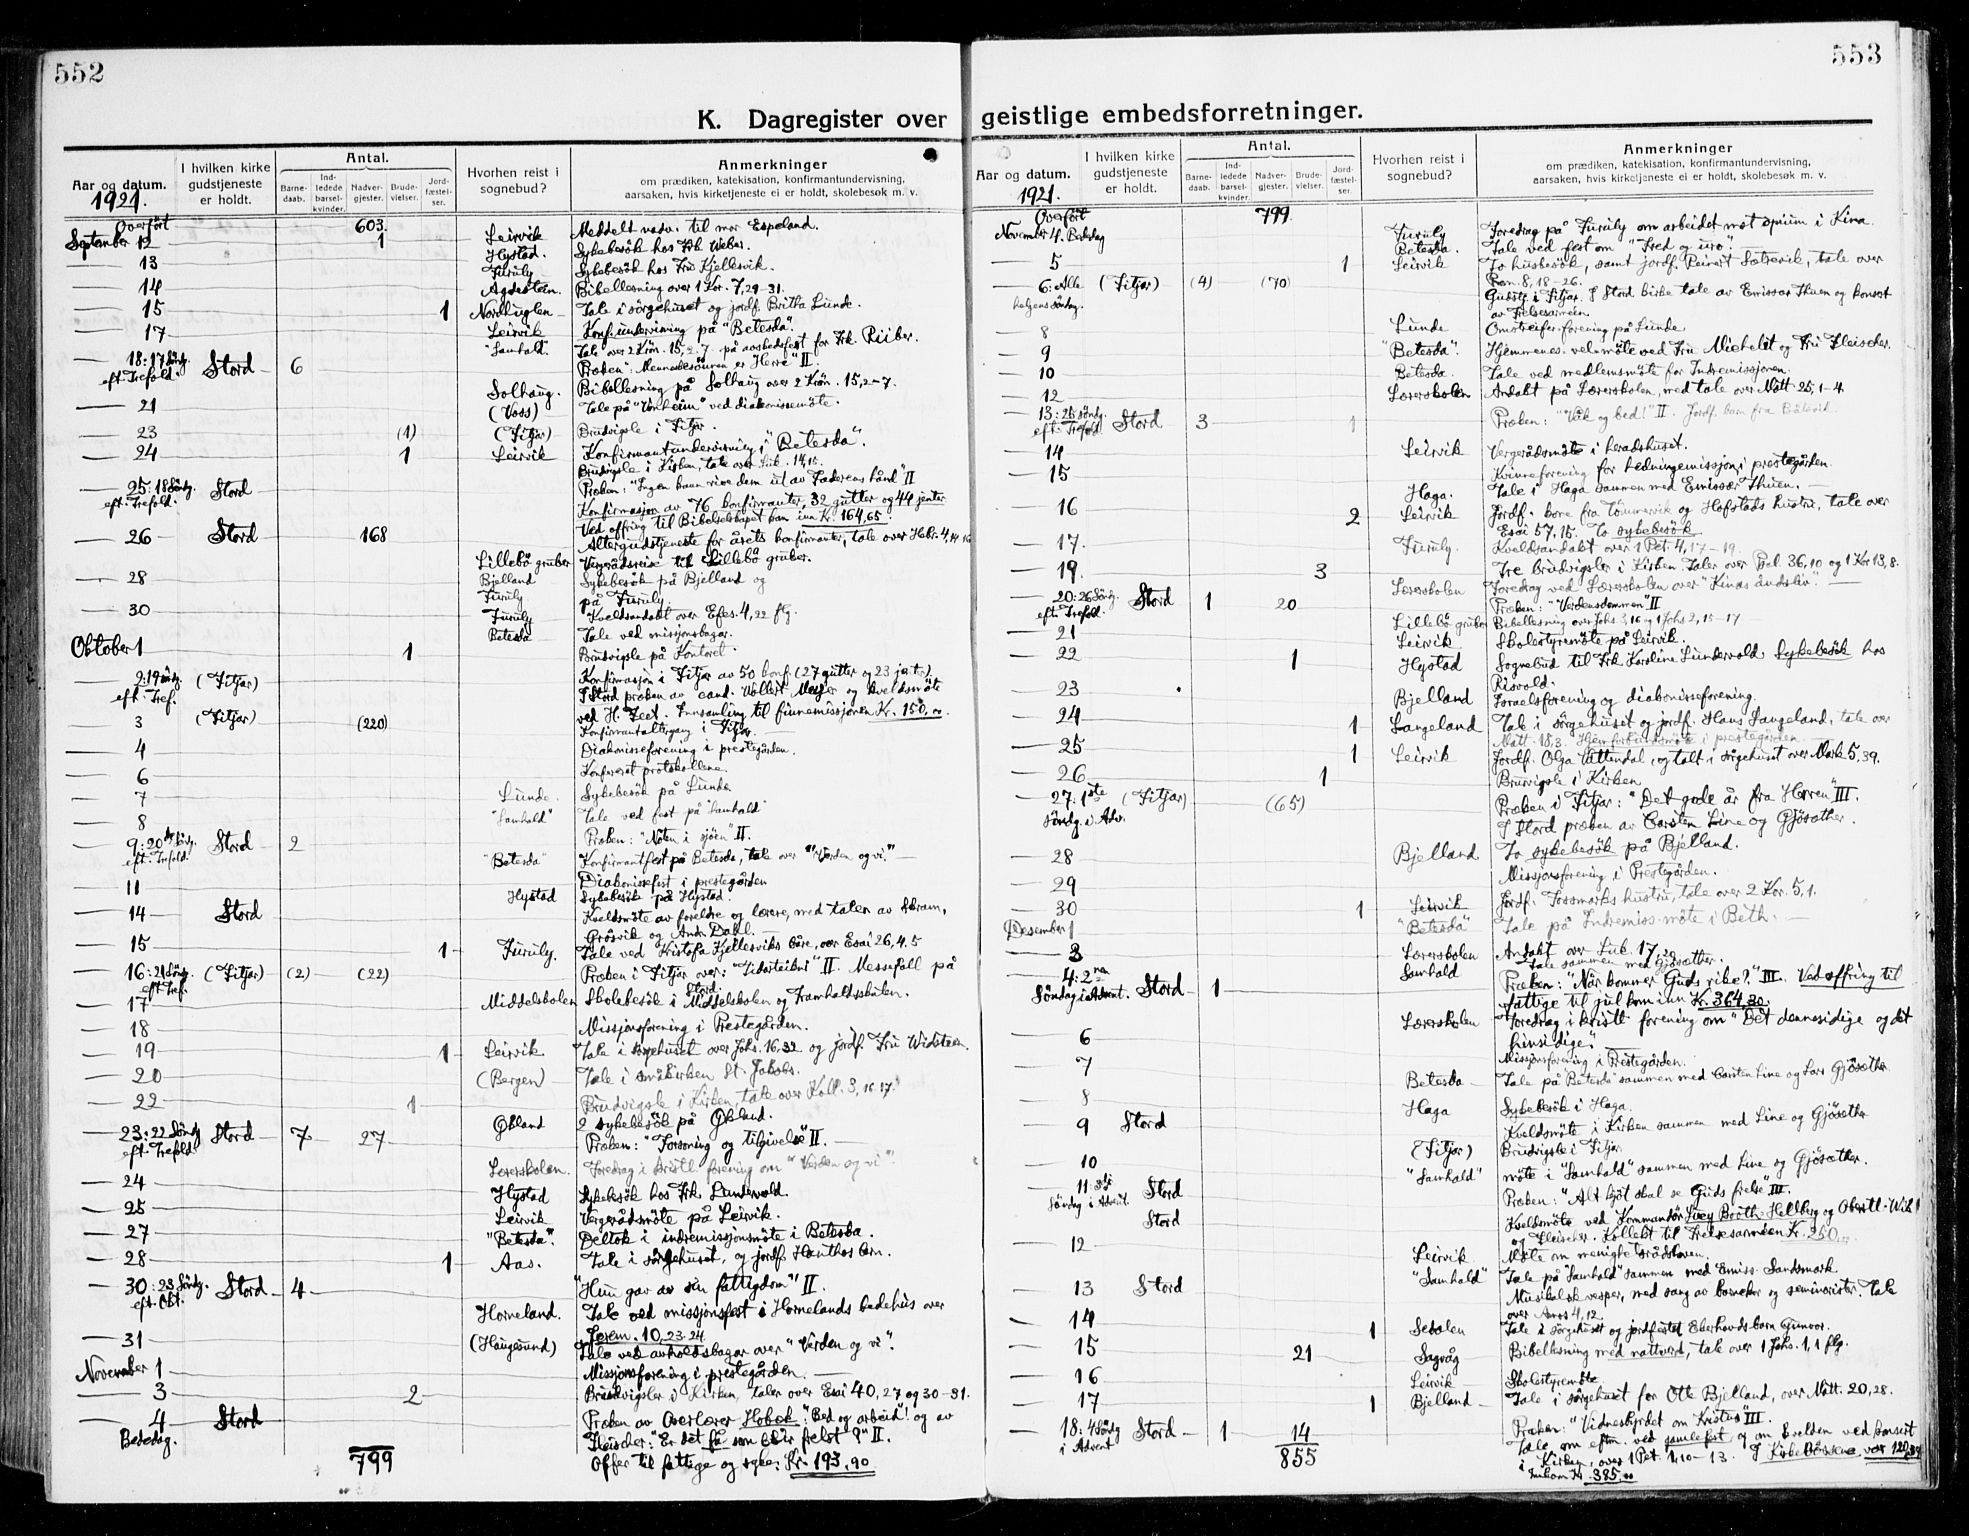 552
K. Dagregister over
Aar og datum.
1921.
I hvilken kirke gudstjeneste er holdt.
Antal.
Barne-daab.
Ind-ledede barsel-kvinder.
Nadver-gjester.
Brude-vielser.
Jord-fæstel-ser.
Hvorhen reist i sognebud?
Anmerkninger
om prædiken, katekisation, konfirmantundervisning,
aarsaken, hvis kirketjeneste ei er holdt, skolebesøk m. v.
Overført 603
September 12 1 Leirvik Meddelt nadv. til mor Espeland.
Hystad. Sykebesök hos Frk Weber.
13 Furuly Sykebesök hos Fru Kjellesvik.
14 Agdestein. Bibellesning over 1 Kor. 7,29-31.
15 1 Nordhuglen Tale i sörgehuset og jordf. Britha Lunde.
17 Leirvik Konf.undervisning på "Betesda".
"Samhald" Tale over 2 Krön. 15,2-7 på avskedsfest for Frk. Riiber.
18: 17 Söndg. eft. Trefold. Stord 6 Præken: "Menneskesönnen er Herre" II
Solhaug. Bibellesning på Solhaug over 2 Krön. 15,2-7.
21 (Voss) Tale på "Vonheim" ved diakonissemöte.
23 (1) (Fitjar) Brudvigsle i Fitjar.
24 1 Leirvik Konfirmantundervisning i "Betesda".
Brudvigsle i Kirken, tale over Luk. 14,15.
25: 18 Söndg. eft. Trefold. Stord Præken: "Ingen kann rive dem ut av Faderens hånd" II
Konfirmasjon av 76 konfirmanter, 32 gutter og 44 jenter
Ved offring til Bibelselskapet kom inn Kr. 164,65.
26 Stord 168 Altergudstjeneste for årets konfirmanter, tale over Hebr. 4,14-16
Lillebö gruber Vergerådsreise til Lillebö gruber.
28 Bjelland Sykebesök på Bjelland og
Furuly på Furuly.
30 Furuly Kveldsandakt over Efes. 4,22 flg.
Betesda Tale ved missjonsbasar.
Oktober 1 1 Brudvigsle på Kontoret.
2: 19 söndg. eft. Tref. (Fitjar) Konfirmasjon i Fitjar av 50 konf. (27 gutter og 23 jenter).
I Stord præken av cand. Vollert Meyer og kveldsmöte
ved H. Zeit. Innsamling til finnemissjonen Kr. 150,00
3 (Fitjar) (220) Konfirmantaltergang i Fitjar.
4 Diakonisseforening i prestegården.
6 Konfereret protokollene.
7 Lunde. Sykebesök på Lunde.
8 "Samhald" Tale ved fest på "Samhald"
9: 20 söndg. eft. Trefold. Stord 2 Præken: "Noten i sjöen" II.
"Betesda" Konfirmantfest på Betesda, tale over "Verden og vi".
11 Diakonissefest i prestegården
Hystad Sykebesök på Hystad.
14 Stord Kveldsmöte av foreldre og lærere, med taler av Særam,
Grösvik og Andr. Dahl.
15 1 Furuly. Tale ved Kristofa Kjellesviks båre, over Esai 26,4.5
16: 21 Söndg. eft Tref. (Fitjar) (2) (22) Præken i Fitjar over: "Tidarteikni" II. Messefall på Stord.
17 Middelskolen Skolebesök i Middelskolen og Framhaldsskulen.
18 Missjonsforening i Prestegården.
19 1 Leirvik Tale i sörgehuset over Johs. 16,32 og jordf. Fru Widsteen.
20 (Bergen) Tale i småkirken St. Jakobs.
22 1 Brudvigsle i Kirken, tale over Koll. 3,16.17.
Økland 2 sykebesök på Økland.
23: 22 Söndg eft. Trefold. Stord 7 27 Præken: "Forsoning og tilgivelse" II.
Lærerskolen. Foredrag i kristl. forening om "Verden og vi".
24 Hystad Sykebesök hos Frk. Lundevold.
25 Leirvik Vergerådsmöte på Leirvik.
27 "Betesda". Deltok i indremissjonsmöte i Betesda.
28 1 Aas. Tale i sörgehuset, og jordf. Hanthos barn.
30: 23 Söndg. eft. Okt. Stord 4 "Hun gav av sin fattigdom" II.
Horneland. Tale ved missjonsfest i Hornelands bedehus over
Jerem. 10,23.24
31 (Haugesund) Tale ved avholdsbasar over "Verden og vi".
November 1 Missjonsforening i prestegården.
3 2 Brudvigsler i Kirken, taler over Esai 40,27 og 30-31.
4 Bededag. Stord Præken av Overlærer Hobæk: "Bed og arbeid"! og av
Fleischer: "Er det få som blir frelst?" II.
799 Offer til fattige og syke: Kr. 193,90
553
geistlige embedsforretninger.
Aar og datum.
1921.
I hvilken kirke gudstjeneste er holdt.
Antal.
Barne-daab.
Ind-ledede barsel-kvinder.
Nadver-gjester.
Brude-vielser.
Jord-fæstel-ser.
Hvorhen reist i sognebud?
Anmerkninger
om prædiken, katekisation, konfirmantundervisning,
aarsaken, hvis kirketjeneste ei er holdt, skolebesøk m. v.
Overført 799
November 4. Bededag Furuly Foredrag på Furuly om arbeidet mot opium i Kina.
Betesda. Tale ved fest om "Fred og uro".
5 1 Leirvik To husbesök, samt jordf. Reinert Sætrevik, tale over
Rom. 8,18-26.
6: Alle helgens söndg. (Fitjar) (4) (70) Gudstj. i Fitjar. I Stord kirke tale av Emissær Thuen og konsert
av Frelsesarmeen.
8 Lunde Omstreiferforening på Lunde
9 "Betesda". Hjemmenes vel-möte ved Fru Michelet og Fru Fleischer.
10 Betesda. Tale ved medlemsmöte for Indremissjonen.
12 Lærerskolen Andakt på Lærerskolen, med tale over Matt. 25,1-4.
13: 25 söndg. eft. Trefold. Stord 3 1 Præken: "Våk og bed!" II. Jordf. barn fra Båtsvik.
14 Leirvik Vergerådsmöte i heradshuset.
15 Kvinneforening for hedningemissjon i prestegården.
Haga. Tale i Haga sammen med Emissær Thuen.
16 2 Leirvik Jordf. kone fra Tömmervik og Hofstads hustru, tale over
Esai 57,15. To sykebesök
17. Furuly. Kveldsandakt over 1 Pet. 4,17-19.
19. 3 Tre brudvigsler i Kirken. Taler over Sal. 36,10 og 1 Kor 13,8.
Lærerskolen Foredrag ved Lærerskolen over "Kinas åndsliv".
20: 26 Söndg. eft Trefold. Stord 1 20 Præken: "Verdensdommen" II
Lillebö gruber Bibellesning over Johs. 3,16 og 1 Johs 2,15-17
21 Leirvik Skolestyremöte på Leirvik.
22 1 Hystad Sognebud til Frk Karoline Lundevold. Sykebesök hos
Risvold.
23 Bjelland Israelsforening og diakonisseforening.
24 1 Langeland Tale i sörgehuset og jordf. Hans Langeland, tale over
Matt. 18,3. Hjemforbundsmöte i prestegården.
25 1 Leirvik Jordf. Olga Vattendal, og talt i sörgehuset over Mark 5,39.
26 1 Brurvigsle i Kirken
27: 1ste söndg. i Adv. (Fitjar) (65) Præken i Fitjar: "Det gode år fra Herren" III.
I Stord præken av Carsten Line og Gjösæther.
28 Bjelland To sykebesök på Bjelland.
29 Missjonsforening i Prestegården.
30 1 Leirvik Jordf. Fossmarks hustru, tale over 2 Kor. 5,1.
Desember 1 "Betesda" Tale på Indremiss.möte i Beth.
3 Lærerskolen Andakt over Luk. 17,
Samhald Tale sammen med Gjösæther.
4: 2nen Söndag i Advent. Stord 1 Præken: "Når kommer Guds rike?" III. Ved offring til
fattige til jul kom inn Kr. 364,30.
6 Lærerskolen Foredrag i kristl. forening om "Det dennesidige og det
hinsidige".
7 Missjonsforening i Prestegården.
Betesda Tale på "Betesda" sammen med Carsten Line og Lars Gjösæther
8 Haga Sykebesök i Haga.
9 Stord Kveldsmöte i Kirken sammen med Line og Gjösæther
(Fitjar) Brudvigsle i Fitjar
10 "Samhald" möte i "Samhald" sammen med Line og Gjösæther.
11: 3dje Söndag i Advent. Stord Præken: "Alt kjöt skal se Guds frelse" III.
Stord Kveldsmöte ved Kommandör Lucy Booth-Hellberg og Oberstl.
og Fleischer. Kollekt til Frelsesarmeen Kr. 250,00
12 Leirvik Möte om menighetsrådsloven.
"Samhald" Tale på "Samhald" sammen med Emiss. Sandsmark
13 Stord Musikalsk vesper, med sang av barnekor og seminarister. Tale
over Amos 4,12.
14 1 Sedalen Tale i sörgehuset og jordfestet Eberhards barn Gunvor.
15 21 Sagvåg Bibellesning med nattverd, tale over 1 Johs. 1,1 flg.
16 Leirvik Skolestyremöte
17 1 Bjelland Tale i sörgehuset for Ole Bjelland, over Matt. 20,28.
18: 4 Söndg i Advent Stord 1 14 Præken: "Vidnesbyrdet om Kristus" III.
Tale om eftm. ved samlefest og om kvelden ved konsert
855 i Kirken, over 1 Pet. 1,10-13. I Kirkebössene var 120,34
Innkom Kr. 385,00